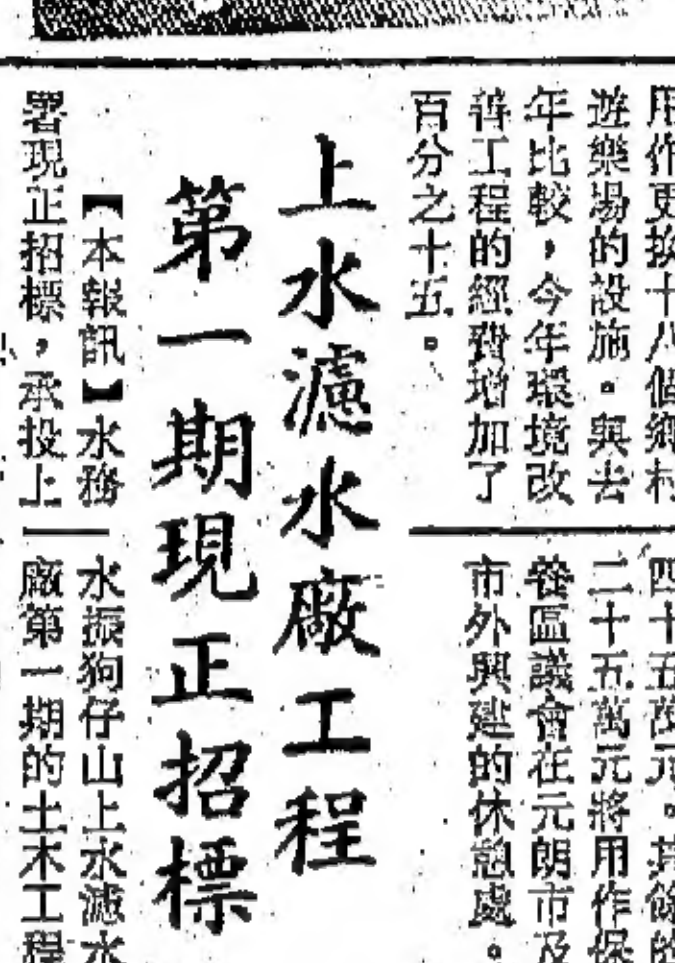 用作更換十八個鄉村
遊樂場的設施。與去
年比較，今年環境改
善工程的經費增加了
百分之十五。
四十五萬元。其餘的
二十五萬元將用作保
養區議會在元朗市及
市外興建的休憩處。
上水濾水廠工程
第一期現正招標
【本報訊】水務
署現正招標，承投上
水振狗仔山上水濾水
廠第一期的土木工程